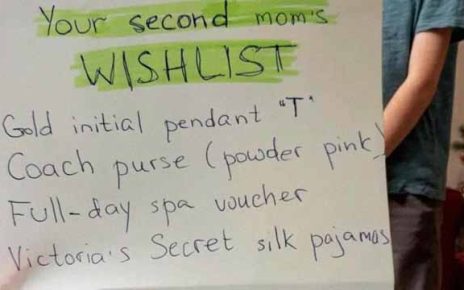 Your second mom's
WISHLIST
Gold initial pendant "T"
Coach purse (powder pink)
Full-day spa voucher
Victoria's Secret silk pajamas